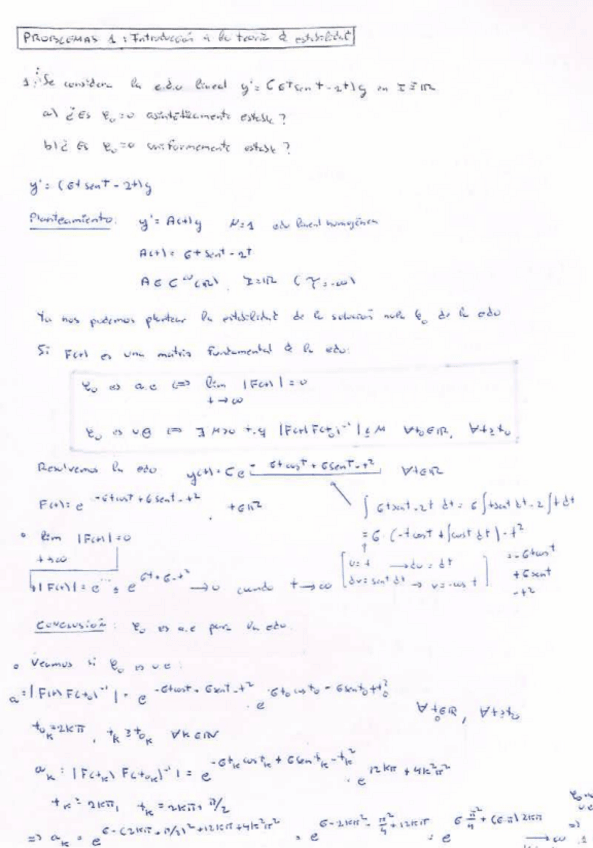 PROBLEMAS 1 : Introducción a la teoría de estabilidad
1. Se considera la edu lineal y' = (6t sen t - 2t)y en I=ℝ
a) ¿Es φ₀=0 asintóticamente estable?
b) ¿Es φ₀=0 uniformemente estable?
y' = (6t sen t - 2t)y
Planteamiento: y' = A(t)y N=1 edu lineal homogénea
A(t) = 6t sen t - 2t
A ∈ C^∞(ℝ), I=ℝ (τ=-∞)
Ya nos podemos plantear la estabilidad de la solución nula φ₀ de la edo
Si F(t) es una matriz fundamental de la edo:
φ₀ es a.e ⟺ lim |F(t)| = 0
t→∞
φ₀ es u.e ⟺ ∃ M>0 t.q |F(t)F(t₀)⁻¹| ≤ M ∀t₀∈ℝ, ∀t≥t₀
Resolvemos la edo y(t) = C e^(-6t cos t + 6 sen t - t²) ∀t∈ℝ
F(t) = e^(-6t cos t + 6 sen t - t²), t∈ℝ
∫ 6t sen t - 2t dt = 6∫ t sen t dt - 2∫ t dt
= 6 (-t cos t + ∫ cos t dt) - t²
[u=t → du=dt
dv=sen t dt → v=-cos t]
= -6t cos t
+6 sen t
- t²
• lim |F(t)| = 0
t→∞
|F(t)| = e^... ≤ e^(6t+6-t²) → 0 cuando t→∞
Conclusión: φ₀ es a.e para la edo.
• Veamos si φ₀ es u.e:
a = |F(t) F(t₀)⁻¹| = e^(-6t cos t + 6 sen t - t²) · e^(6t₀ cos t₀ - 6 sen t₀ + t₀²)
∀t₀∈ℝ, ∀t≥t₀
t₀ₖ=2kπ, tₖ ≥ t₀ₖ ∀k∈ℕ
aₖ = |F(tₖ) F(t₀ₖ)⁻¹| = e^(-6tₖ cos tₖ + 6 sen tₖ - tₖ²) · e^(12kπ + 4k²π²)
t₀ₖ = 2kπ, tₖ = 2kπ + π/2
⇒ aₖ = e^(6-(2kπ+π/2)²+12kπ+4k²π²) = e^(6-2kπ²-π²/4+12kπ) = e^(6-π²/4+(6-π)2kπ) → ∞